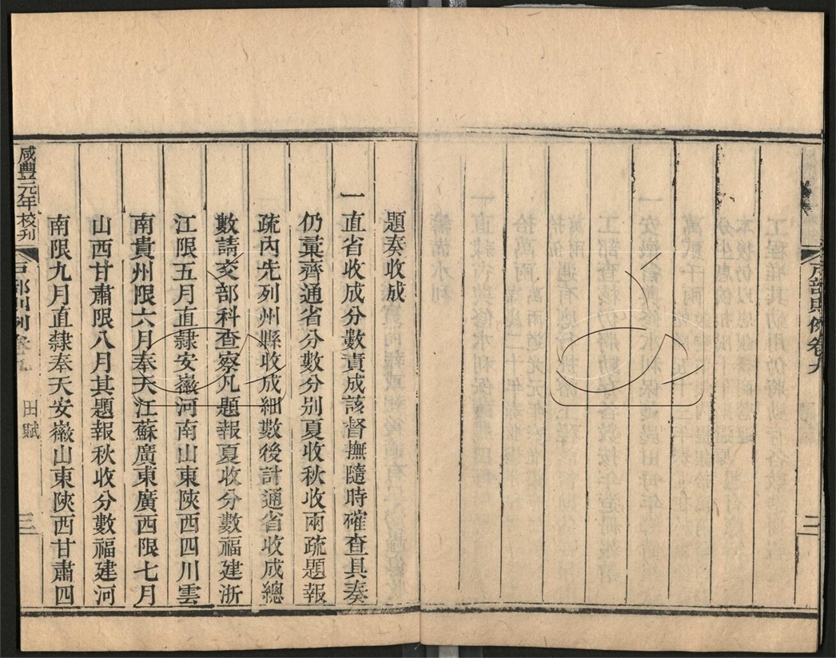 戶部則例卷九
二
題奏收成
一直省收成分數責成該督撫隨時確查具奏
仍彙齊通省分數分别夏收秋收兩疏題報
疏內先列州縣收成細數後計通省收成總
數請交部科查察凡題報夏收分數福建浙
江限五月直隸安徽河南山東陝西四川雲
南貴州限六月奉天江蘇廣東廣西限七月
山西甘肅限八月其題報秋收分數福建河
南限九月直隸奉天安徽山東陝西甘肅四
咸豐元年校刊
戶部則例卷九
田賦
三